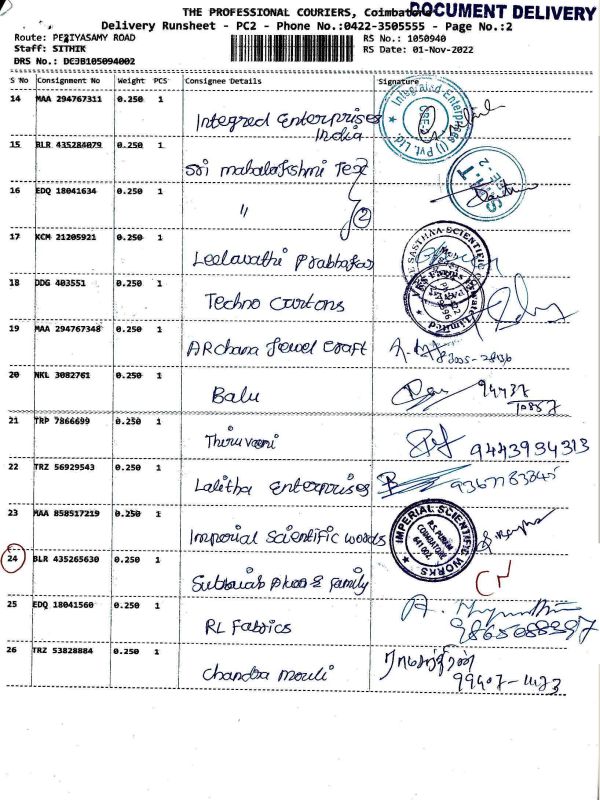 THE PROFESSIONAL COURIERS, Coimbatore
DOCUMENT DELIVERY
Delivery Runsheet - PC2 - Phone No.:0422-3505555 - Page No.:2
Route: PERIYASAMY ROAD
RS No.: 1050940
Staff: SITHIK
RS Date: 01-Nov-2022
DRS No.: DCJB105094002
S No Consignment No Weight PCS Consignee Details Signature
14 MAA 294767311 0.250 1
Integred Enterprises
India
Integrated Enterprises (I) Pvt. Ltd.
CBE-
15 BLR 435284079 0.250 1
Sri mahalakshmi Text
16 EDQ 18041634 0.250 1
" 2
17 KCM 21205921 0.250 1
Leelavathi Prabhakar
SASTHAA SCIENTIFIC
18 DDG 403551 0.250 1
Techno Cartons
Private Limited
19 MAA 294767348 0.250 1
ARchana Jewel Craft
20 NKL 3082761 0.250 1
Balu
94437
10857
21 TRP 7866699 0.250 1
Thiruvani
9443934313
22 TRZ 56929543 0.250 1
Lalitha Enterprises
9367783845
23 MAA 858517219 0.250 1
Imperial Scientific woods
IMPERIAL SCIENTIFIC WORKS
R.S. PURAM
COIMBATORE
641 002.
24 BLR 435265630 0.250 1
& family
25 EDQ 18041560 0.250 1
RL Fabrics
9865088397
26 TRZ 53828884 0.250 1
Chandra mouli